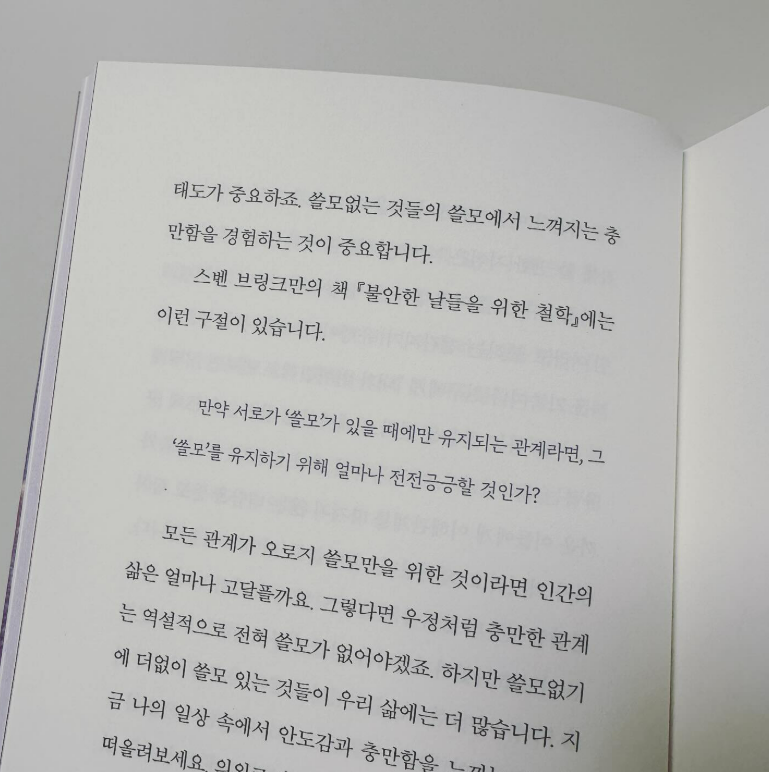 태도가 중요하죠. 쓸모없는 것들의 쓸모에서 느껴지는 충
만함을 경험하는 것이 중요합니다.
스벤 브링크만의 책 『불안한 날들을 위한 철학』에는
이런 구절이 있습니다.
만약 서로가 ‘쓸모’가 있을 때에만 유지되는 관계라면, 그
‘쓸모’를 유지하기 위해 얼마나 전전긍긍할 것인가?
모든 관계가 오로지 쓸모만을 위한 것이라면 인간의
삶은 얼마나 고달플까요. 그렇다면 우정처럼 충만한 관계
는 역설적으로 전혀 쓸모가 없어야겠죠. 하지만 쓸모없기
에 더없이 쓸모 있는 것들이 우리 삶에는 더 많습니다. 지
금 나의 일상 속에서 안도감과 충만함을
떠올려보세요.